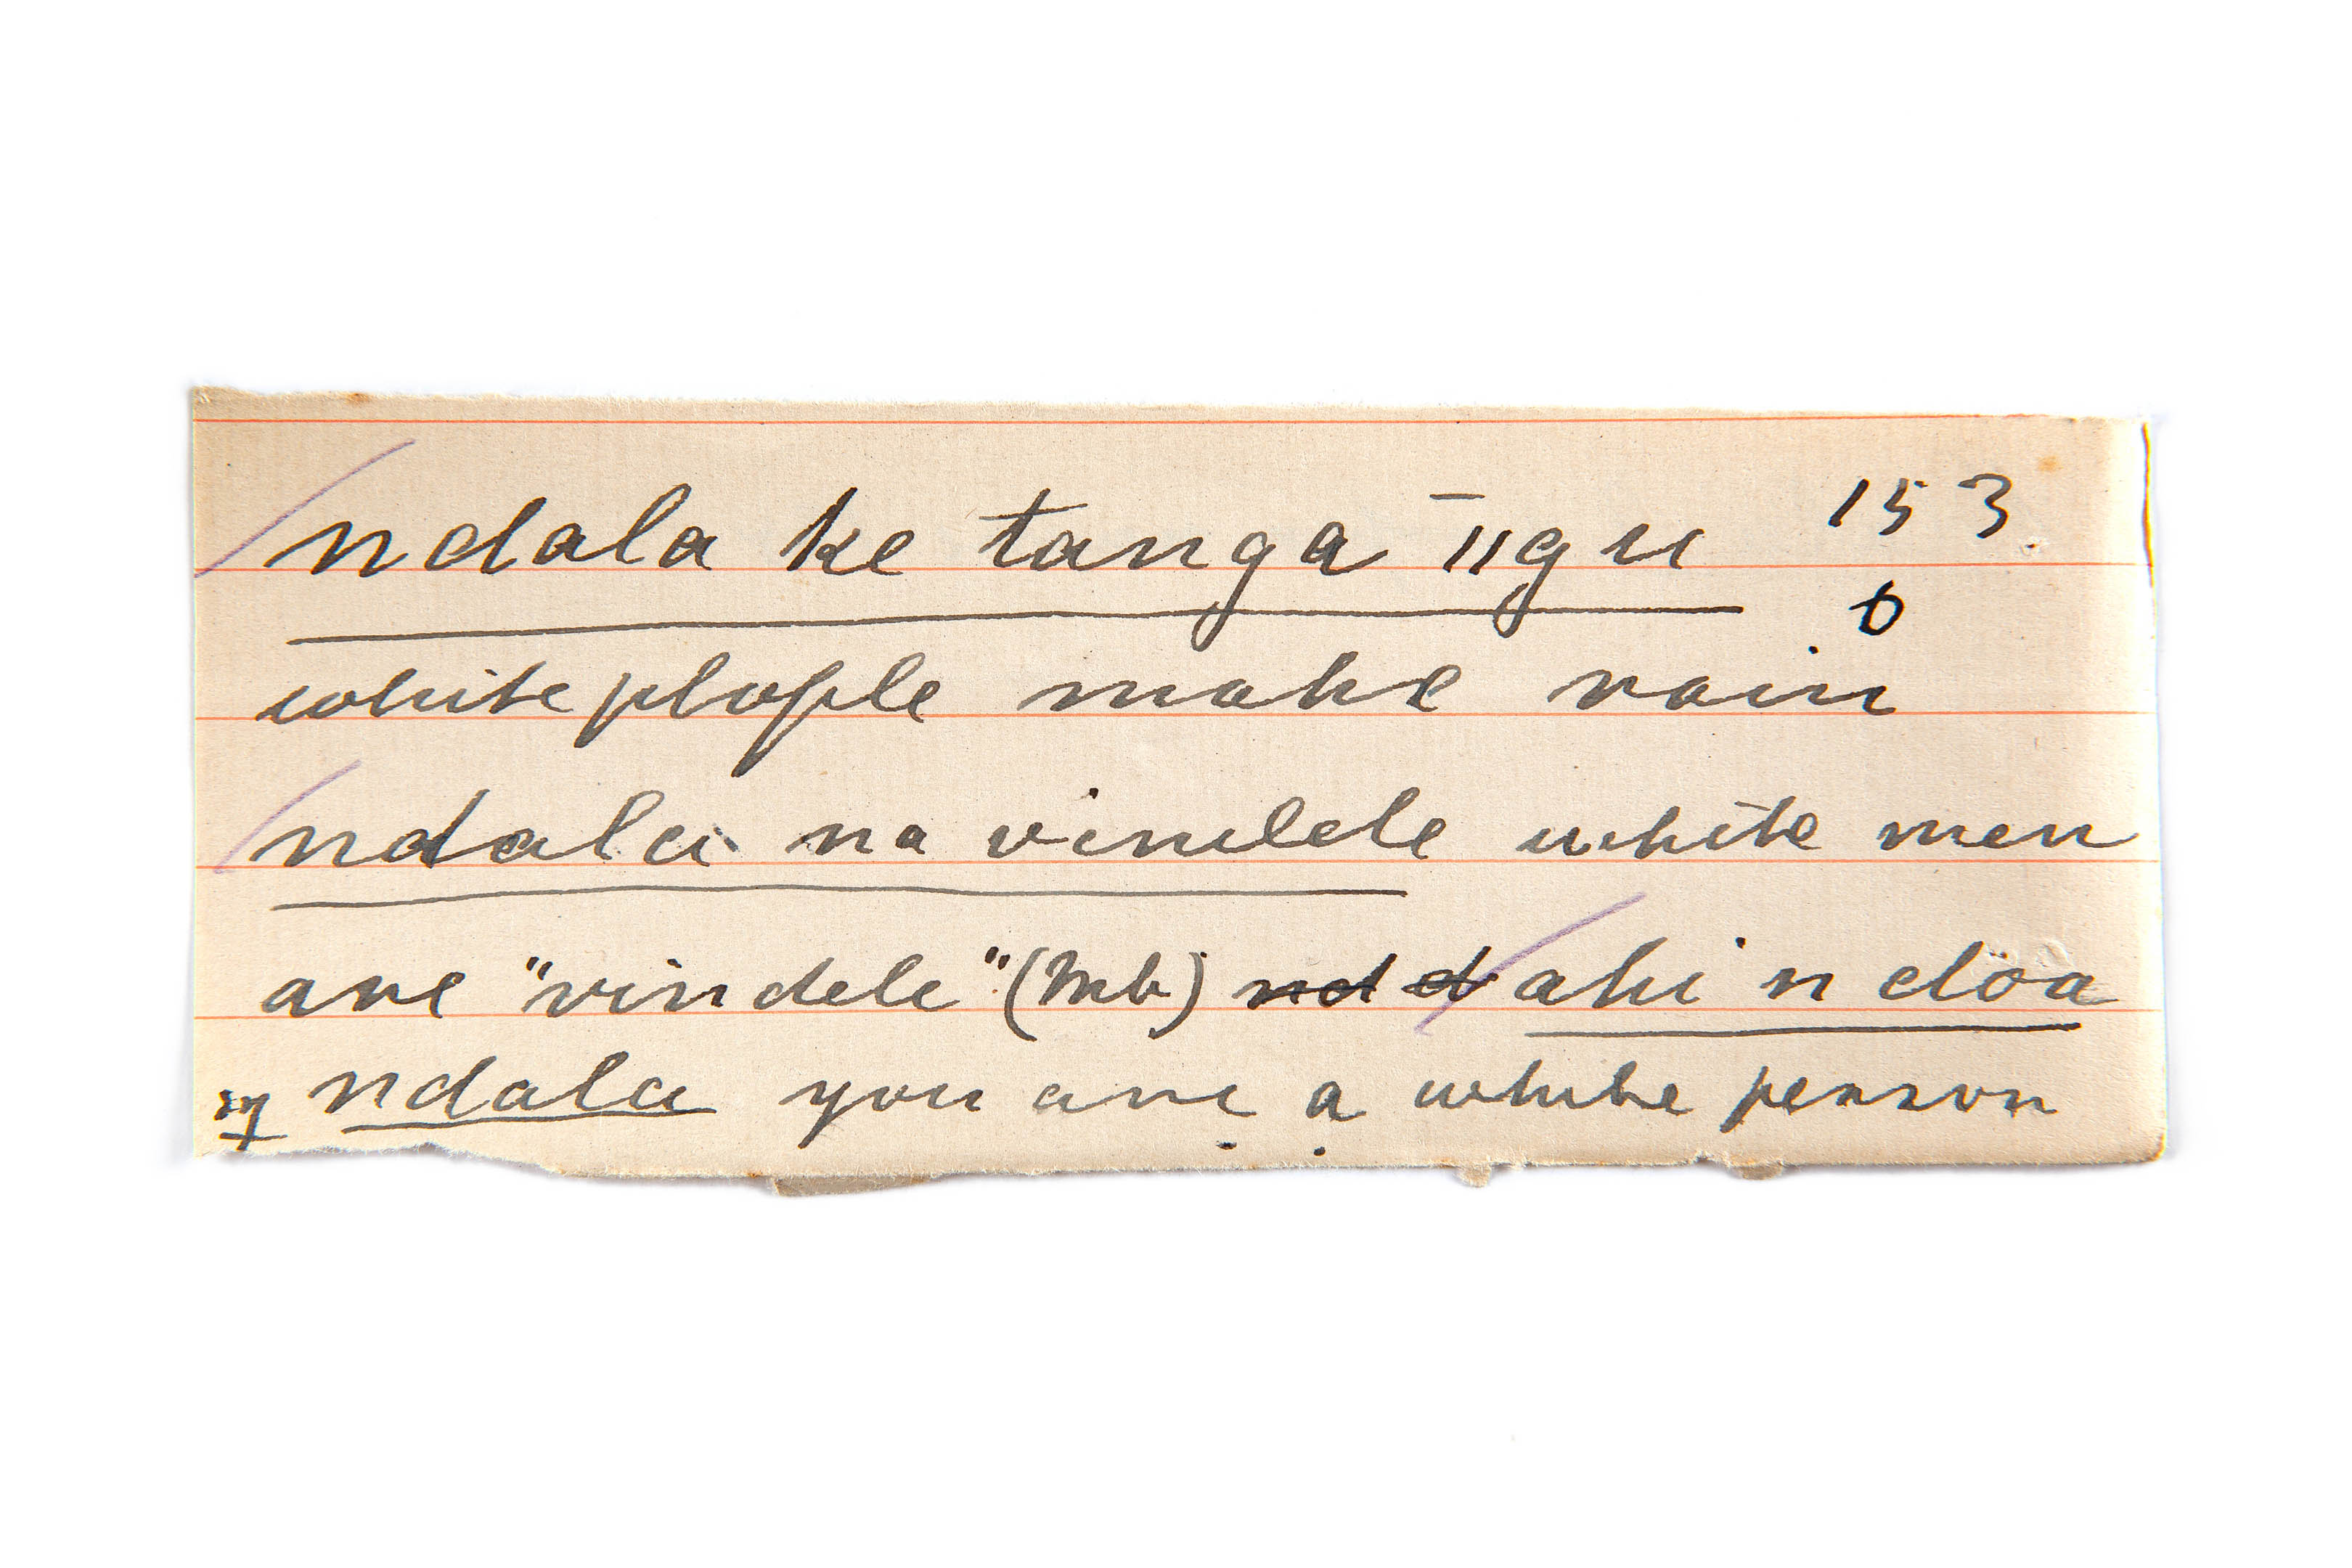 ndala ke tanga īigu 153
white people make rain
ndala na vindele white men
are "vindele" (Mb) nd d ahi n döa
ndala you are a white person